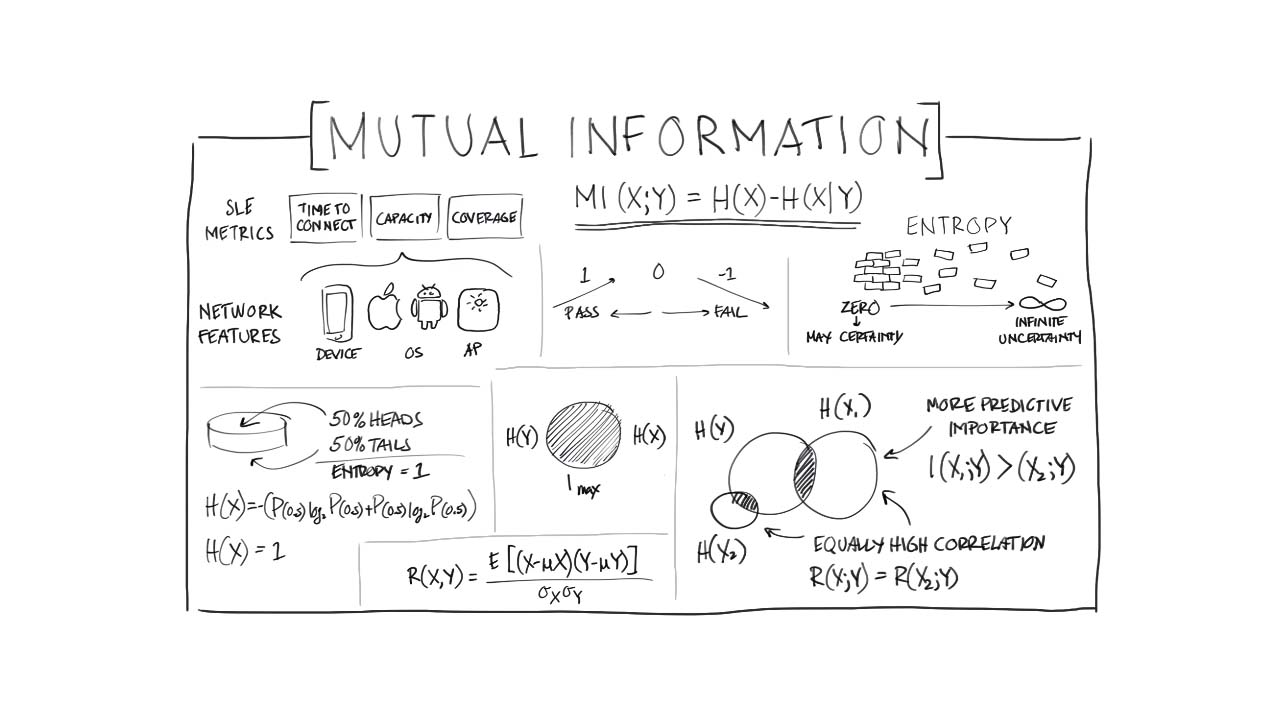 [MUTUAL INFORMATION]
SLE
METRICS
TIME TO
CONNECT
CAPACITY
COVERAGE
NETWORK
FEATURES
DEVICE
OS
AP
MI (X;Y) = H(X)-H(X|Y)
1
0
-1
PASS
FAIL
ENTROPY
ZERO
MAX CERTAINTY
∞
INFINITE
UNCERTAINTY
50% HEADS
50% TAILS
ENTROPY = 1
H(X)=-(P(0.5)log₂P(0.5)+P(0.5)log₂P(0.5))
H(X) = 1
H(Y)
H(X)
I max
R(X,Y) = E[(X-μX)(Y-μY)]
σXσY
H(Y)
H(X₁)
H(X₂)
MORE PREDICTIVE
IMPORTANCE
I(X,;Y) > (X₂;Y)
EQUALLY HIGH CORRELATION
R(X;Y) = R(X₂;Y)